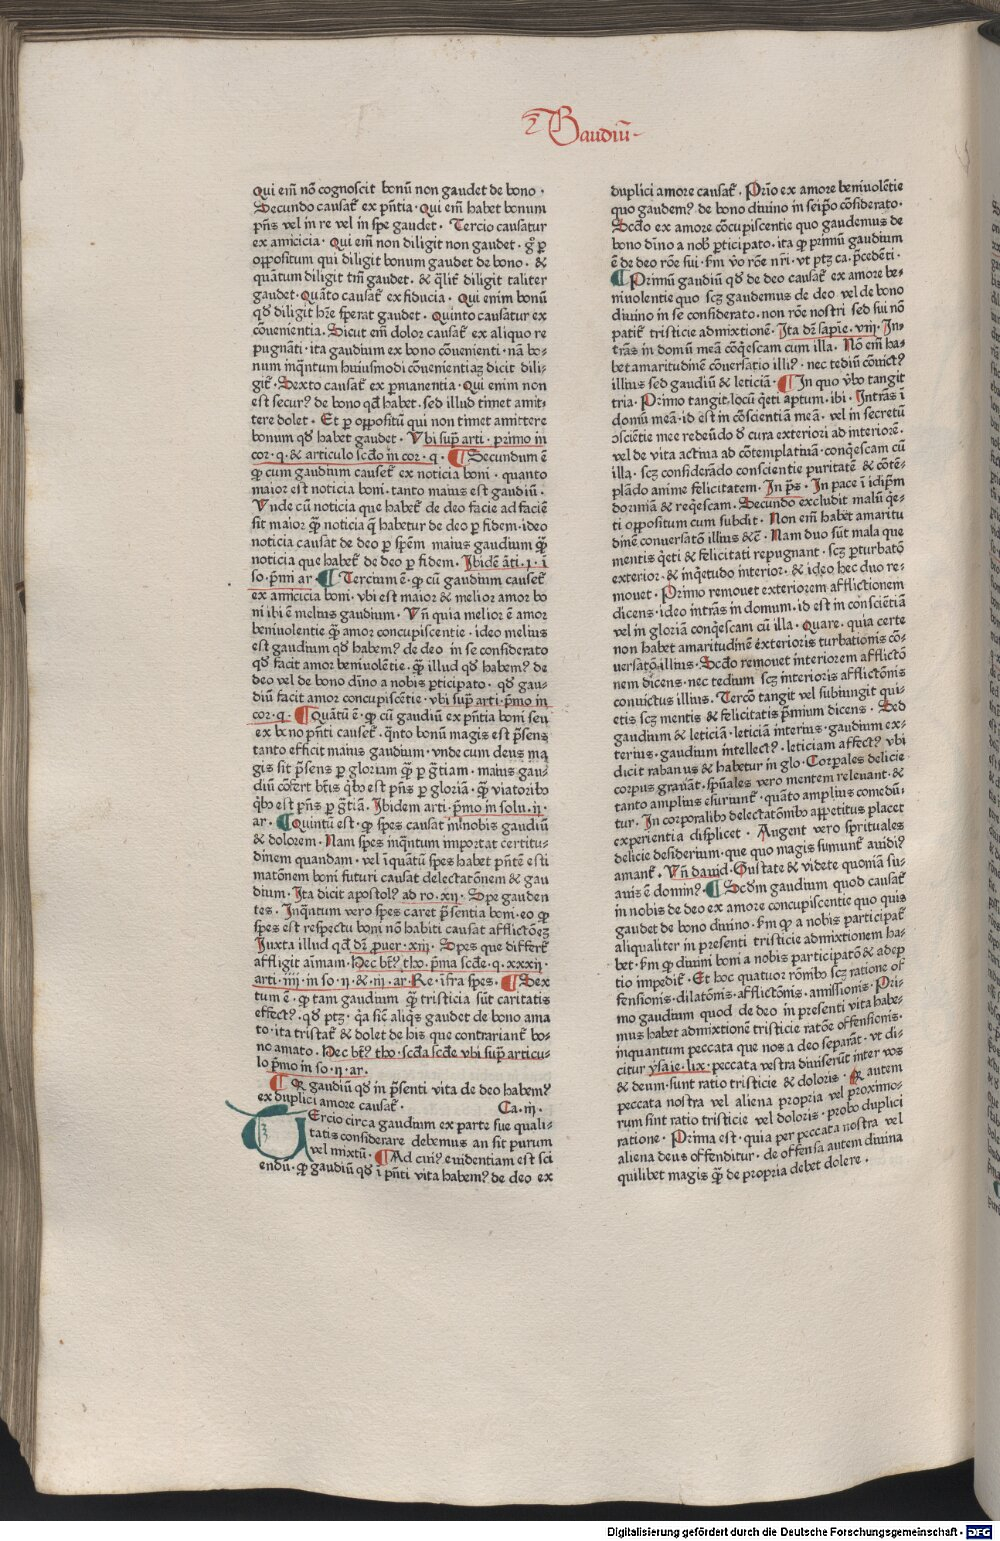 Gaudiū
qui em̄ nō cognoscit bonū non gaudet de bono ·
Secundo causat᷒ ex pn̄tia · Qui em̄ habet bonum
pn̄s vel in re vel in spe gaudet · Tercio causatur
ex amicicia · Qui em̄ non diligit non gaudet · g̊ ꝑ
oppositum qui diligit bonum gaudet de bono · &
quātum diligit tm̄ gaudet · & q̄lit᷒ diligit taliter
gaudet · Quāto causat᷒ ex fiducia · Qui enim bonū
qd̄ diligit hr̄e sperat gaudet · Quinto causatur ex
cōuenientia · Sicut em̄ dolor causat᷒ ex aliquo re
pugnāti · ita gaudium ex bono cōuenienti · nā bo-
num inq̄ntum huiusmodi cōuenientiaꝫ dicit dili-
git᷒ · Sexto causat᷒ ex ꝑmanentia · Qui enim non
est secur⁹ de bono qd̄ habet · sed illud timet amit-
tere dolet · Et ꝑ oppositū qui non timet amittere
bonum qd̄ habet gaudet · Vbi sup̄ arti · primo in
cor · q · & articulo scd̄o in cor · q · ¶ Secundum ē
ꝙ cum gaudium causet᷒ ex noticia boni · quanto
maior est noticia boni · tanto maius est gaudiū ·
Vnde cū noticia que habet᷒ de deo facie ad faciē
sit maior q̄ȝ noticia q̄ habetur de deo ꝑ fidem · ideo
noticia causat de deo ꝑ spēm maius gaudium q̄ȝ
noticia que habet᷒ de deo ꝑ fidem · Ibidē āti · ꝑ · ī
so · pn̄i ar · ¶ Tercium ē · ꝙ cū gaudium causet᷒
ex amicicia boni · vbi est maior & melior amor bo
ni ibi ē melius gaudium · Vn̄ quia melior ē amor
beniuolentie q̄ȝ amor concupiscentie · ideo melius
est gaudium qd̄ habem⁹ de deo in se considerato
qd̄ facit amor beniuolētie · q̄ȝ illud qd̄ habem⁹ de
deo vel de bono dīno a nobis ꝑticipato · qd̄ gau-
diū facit amor concupiscētie · vbi sup̄ arti · pm̄o in
cor · q · ¶ Quātū ē · ꝙ cū gaudiū ex pn̄tia boni seu
ex bo no pn̄ti causet᷒ · q̄nto bonū magis est pn̄sens
tanto efficit maius gaudium · vnde cum deus ma
gis sit pn̄sens ꝑ glorium q̄ȝ ꝑ gr̄tiam · maius gau-
diū cōfert bt̄is qb᷒ est pn̄s ꝑ gloriā · q̄ȝ viatorib᷒
qb᷒ est pn̄s ꝑ gr̄tiā · Ibidem arti · pm̄o in solu · ij ·
ar · ¶ Quintū est · ꝙ spes causat in nobis gaudiū
& dolorem · Nam spes inq̄ntum importat certitu-
dinem quandam · vel īquātū spes habet pn̄tē esti
matōnem boni futuri causat delectatōnem & gau
dium · Ita dicit apostol⁹ ad ro · xij · Spe gauden
tes · Inq̄ntum vero spes caret pn̄sentia boni · eo ꝙ
spes est respectu boni nō habiti causat afflictōeȝ
Juxta illud qd̄ dr̄ ꝓuer · xiij · Spes que differt᷒
affligit aīmam · Hec bt̄⁹ tho · pm̄a scd̄e · q · xxxij ·
arti · iiij · in so · ij · & · iij · ar · Re · īfra spes · ¶ Sex
tum ē · ꝙ tam gaudium q̄ȝ tristicia sūt caritatis
effect⁹ · qd̄ ptȝ · qa sic̄ aliq̄s gaudet de bono ama
to · ita tristat᷒ & dolet de his que contrariant᷒ bo-
no amato · Hec bt̄⁹ tho · scd̄a scd̄e vbi sup̄ articu-
lo pm̄o in so · ij · ar ·
¶ Qꝙ gaudiū qd̄ in pn̄senti vita de deo habem⁹
ex duplici amore causat᷒ · Ca · iij ·
TErcio circa gaudium ex parte sue quali-
tatis considerare debemus an sit purum
vel mixtū · ¶ Ad cui⁹ euidentiam est sci
endū · ꝙ gaudiū qd̄ ī pn̄ti vita habem⁹ de deo ex
duplici amore causat᷒ · Prīo ex amore beniuolētie
quo gaudem⁹ de bono diuino in seip̄o cōsiderato ·
Scd̄o ex amore cōcupiscentie quo gaudemus de
bono dīno a nob᷒ ꝑticipato · ita ꝙ primū gaudium
ē de deo rōe sui · sm̄ vo rōe nr̄i · vt ptȝ ca · pc̄edēti ·
¶ Primū gaudiū qd̄ de deo causat᷒ ex amore be-
niuolentie quo scȝ gaudemus de deo vel de bono
diuino in se considerato · non rōe nostri sed sui nō
patit᷒ tristicie admixtionē · Ita dr̄ sapīe · viij · In-
trās in domū meā cōq̄escam cum illa · Nō em̄ ha-
bet amaritudinē cōuersatio illi⁹ · nec tediū cōuict⁹
illius sed gaudiū & leticiā · ¶ In quo vbo tangit
tria · Primo tangit locū q̄eti aptum · ibi · Intrās ī
domū meā · id est in cōscientiā meā · vel in secretū
ɔscietie mee redeūdo d̄ cura exteriori ad interiorē ·
vel de vita actiua ad cōtemplatiuā · conq̄escam cū
illa · scȝ considerādo conscientie puritatē & cōtē-
plādo anime felicitatem · In ps̄ · In pace ī idip̄m
dormiā & req̄escam · Secundo excludit malū q̄e-
ti oppositum cum subdit · Non em̄ habet amaritu
dinē conuersatō illius &ē · Nam duo sūt mala que
mentis q̄eti & felicitati repugnant · scȝ ꝑturbatō
exterior · & inq̄etudo interior · & ideo hec duo re-
mouet · Primo remouet exteriorem afflictionem
dicens · ideo intrās in domum · id est in consciētiā
vel in gloriā conq̄escam cū illa · Quare · quia certe
non habet amaritudinē exterioris turbationis cō-
uersatō illius · Scd̄o remouet interiorem afflictō
nem dicens · nec tedium scȝ interioris afflictōnis
conuictus illius · Tercō tangit vel subiungit qui-
etis scȝ mentis & felicitatis pm̄ium dicens · Sed
gaudium & leticiā · leticiā interius · gaudium ex-
terius · gaudium intellect⁹ · leticiam affect⁹ vbi
dicit rabanus & habetur in glo · Corꝑales delicie
corpus grauāt · spūales vero mentem releuant · &
tanto amplius esuriunt᷒ · quāto amplius comedū-
tur · In corporalib᷒ delectatōnib᷒ appetitus placet
experientia displicet · Augent vero sprituales
delicie desiderium · que quo magis sumunt᷒ auidi⁹
amant᷒ · Vn̄ dauid · Gustate & videte quoniā su-
auis ē domin⁹ · ¶ Scd̄m gaudium quod causat᷒
in nobis de deo ex amore concupiscentie quo quis
gaudet de bono diuino · sm̄ ꝙ a nobis participat᷒
aliqualiter in presenti tristicie admixtionem ha-
bet · sm̄ ꝙ diuini boni a nobis participatō & adep
tio impedit᷒ · Et hoc quatuor rōnib᷒ scȝ ratione of
fensionis · dilatōnis · afflictōnis · amissionis · Pri-
mo gaudium quod de deo in presenti vita habe-
mus habet admixtionē tristicie ratōe offensionis ·
inquantum peccata que nos a deo separāt · vt di-
citur ysaie · lix · peccata vestra diuiserūt inter vos
& deum · sunt ratio tristicie & doloris · Q autem
peccata nostra vel aliena propria vel proximo-
rum sint ratio tristicie vel doloris · probo duplici
ratione · Prima est · quia per peccata nostra vel
aliena deus offenditur · de offensa autem diuina
quilibet magis q̄ȝ de propria debet dolere ·
Digitalisierung gefördert durch die Deutsche Forschungsgemeinschaft - DFG